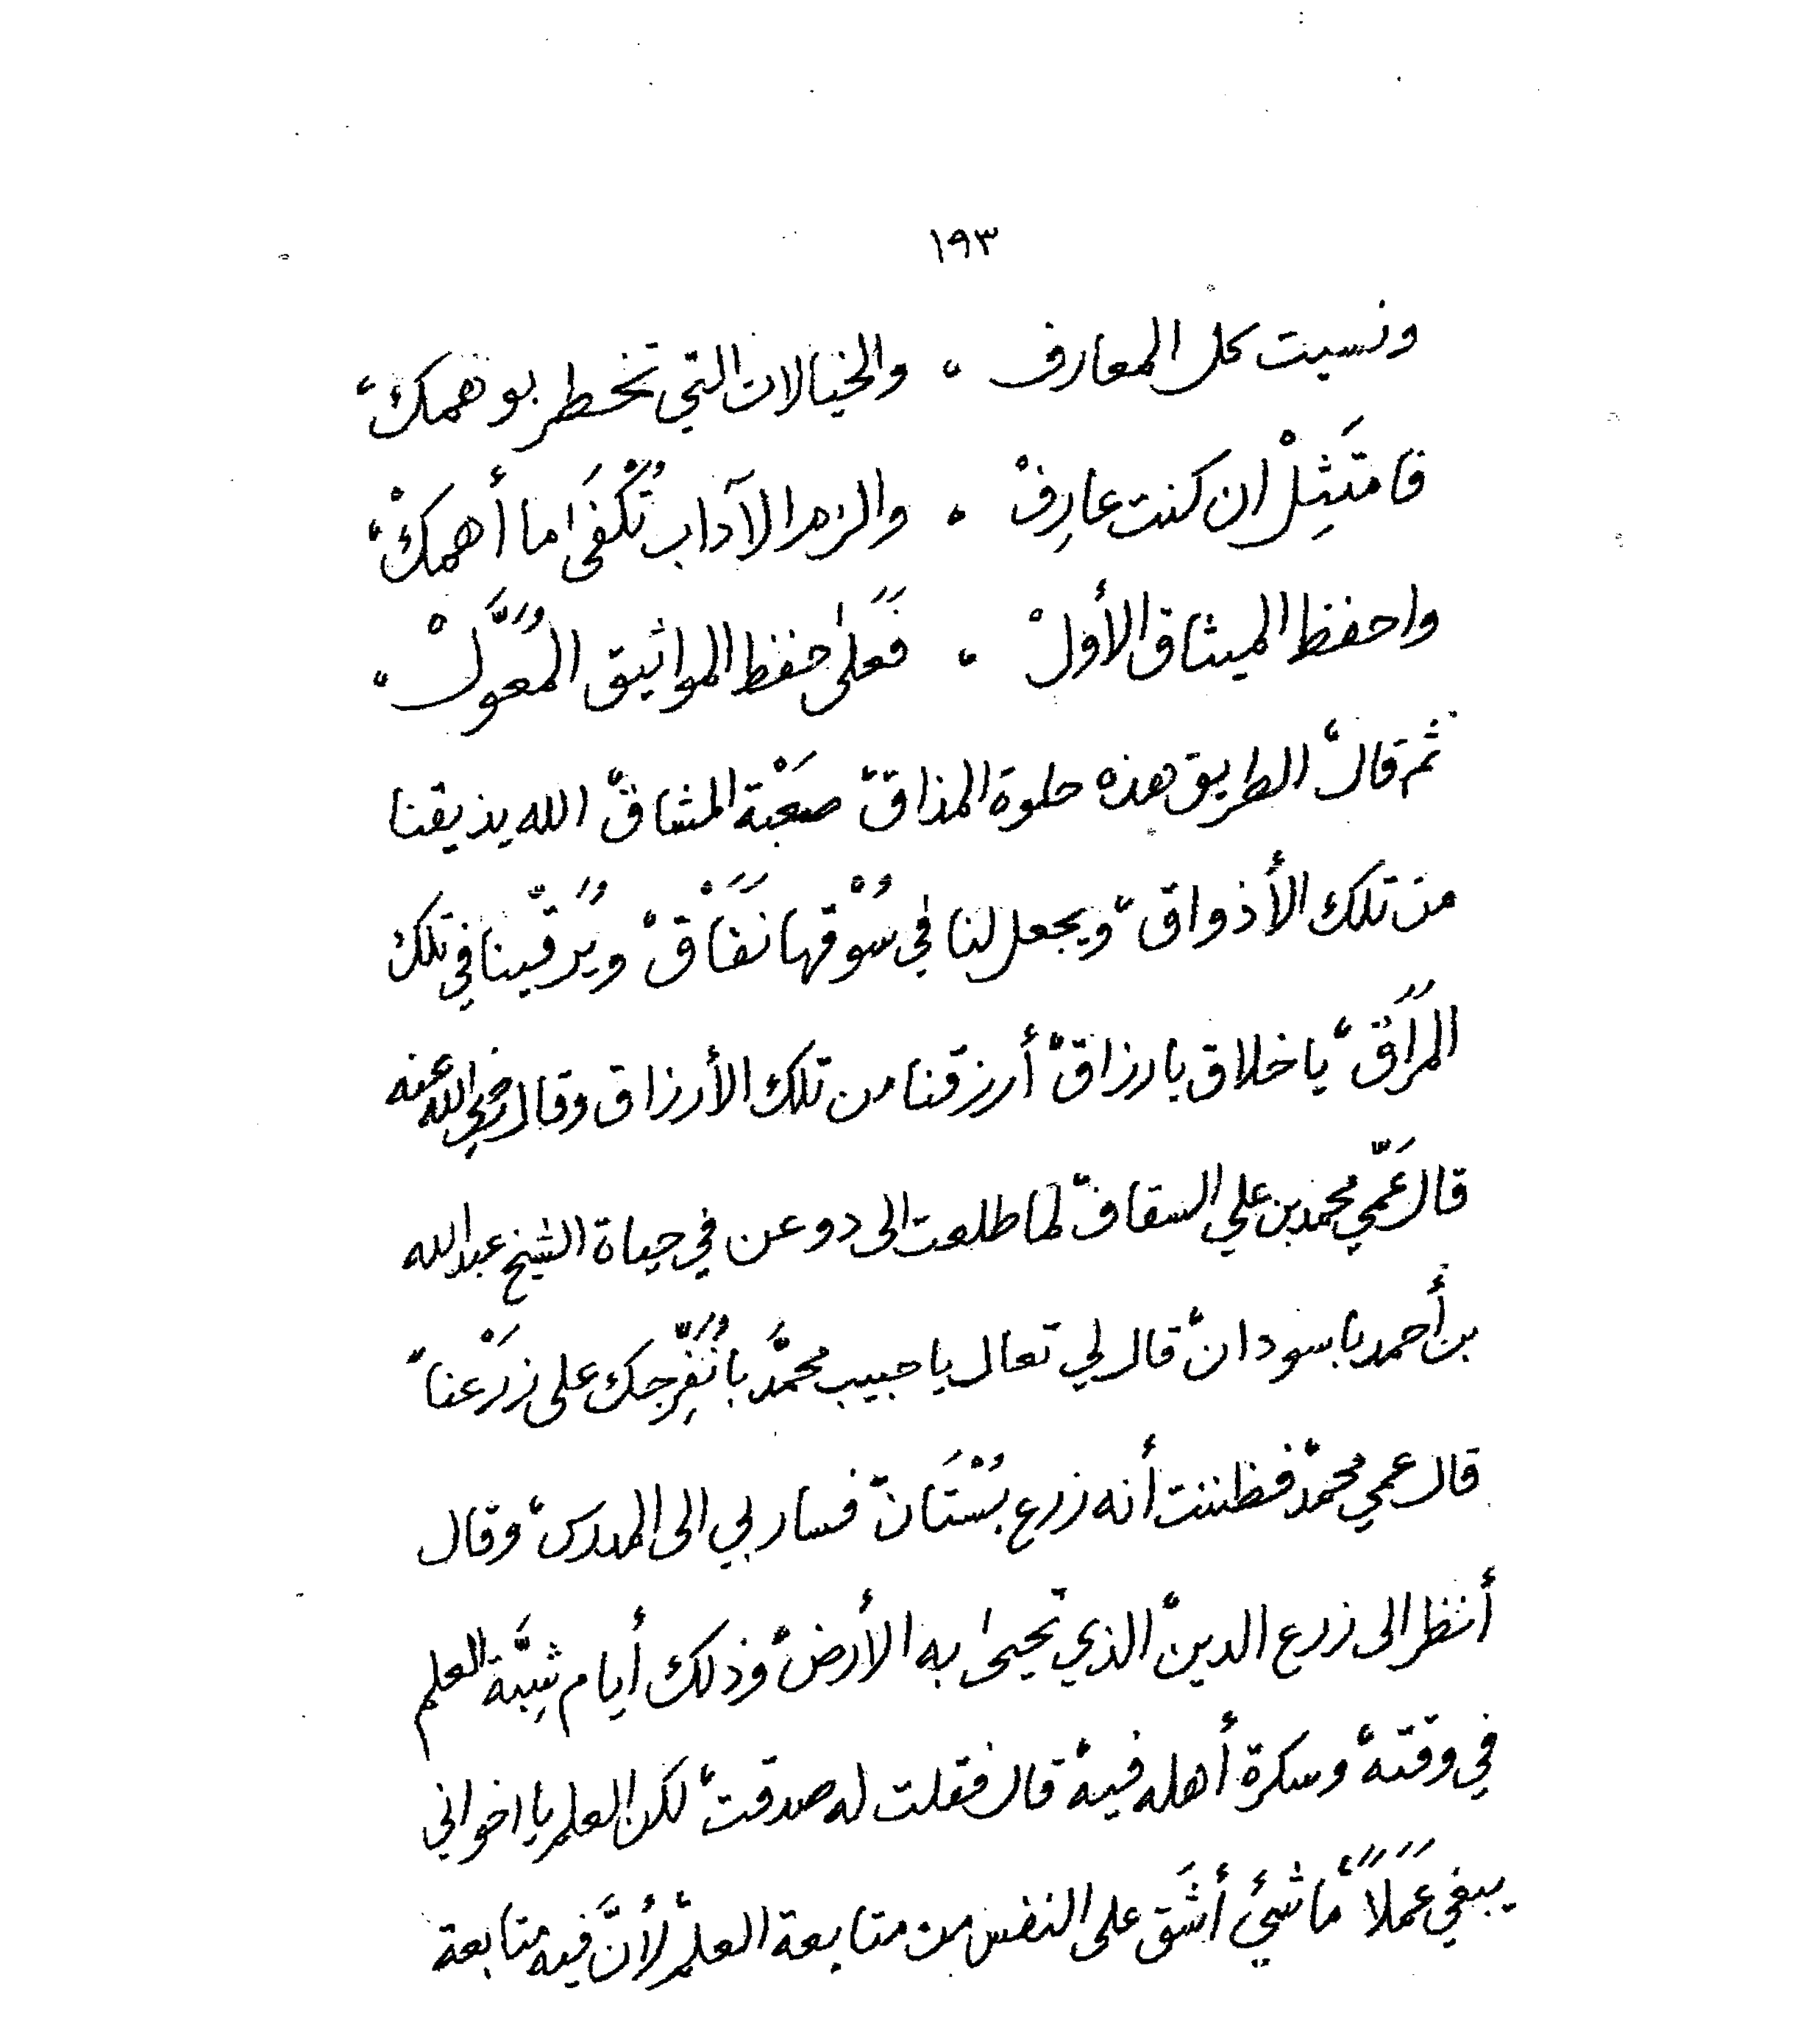 ١٩٣
ونسيت كل المعارف ، والخيالات التي تخطر بوهمك ،
فامتَثِلْ ان كنت عارِفْ ، والزم الآداب تُكْفَى ما أهمكْ ،
واحفظ الميثاق الأولْ ، فَعَلىٰ حفظ المواثيق المُعَوَّلْ ،
ثم قال ، الطريق هذه حلوة المذاق ، صَعْبة المشاق ، الله يذيقنا
من تلك الأذواق ، ويجعل لنا في سُوْقها نَفَاقْ ، ويُرقّينا في تلك
المَرَاقْ ، ياخلاق يارزاق ، أرزقنا من تلك الأرزاق وقال رضي الله عنه
قال عَمّي محمد بن علي السقاف ، لما طلعت الى دوعن في حياة الشيخ عبدالله
بن أحمد باسودان ، قال لي تعال ياحبيب محمَّد بانُفَرِّجك على زَرْعنا ،
قال عمي محمد ، فظننت أنه زرع بُسْتَان ، فسار بي الى المدرس ، وقال
أنظر الى زرع الدين ، الذي تحيىٰ به الأرض ، وذلك أيام شِبَّة العلم
في وقته ، وسكرة أهله فيه ، قال فقلت له صدقت ، لكن العلم يا اخواني
يبغي عَمَلاً ، ما شيْ أشَق على النفس من متابعة العلم ، لأنَّ فيه متابعة